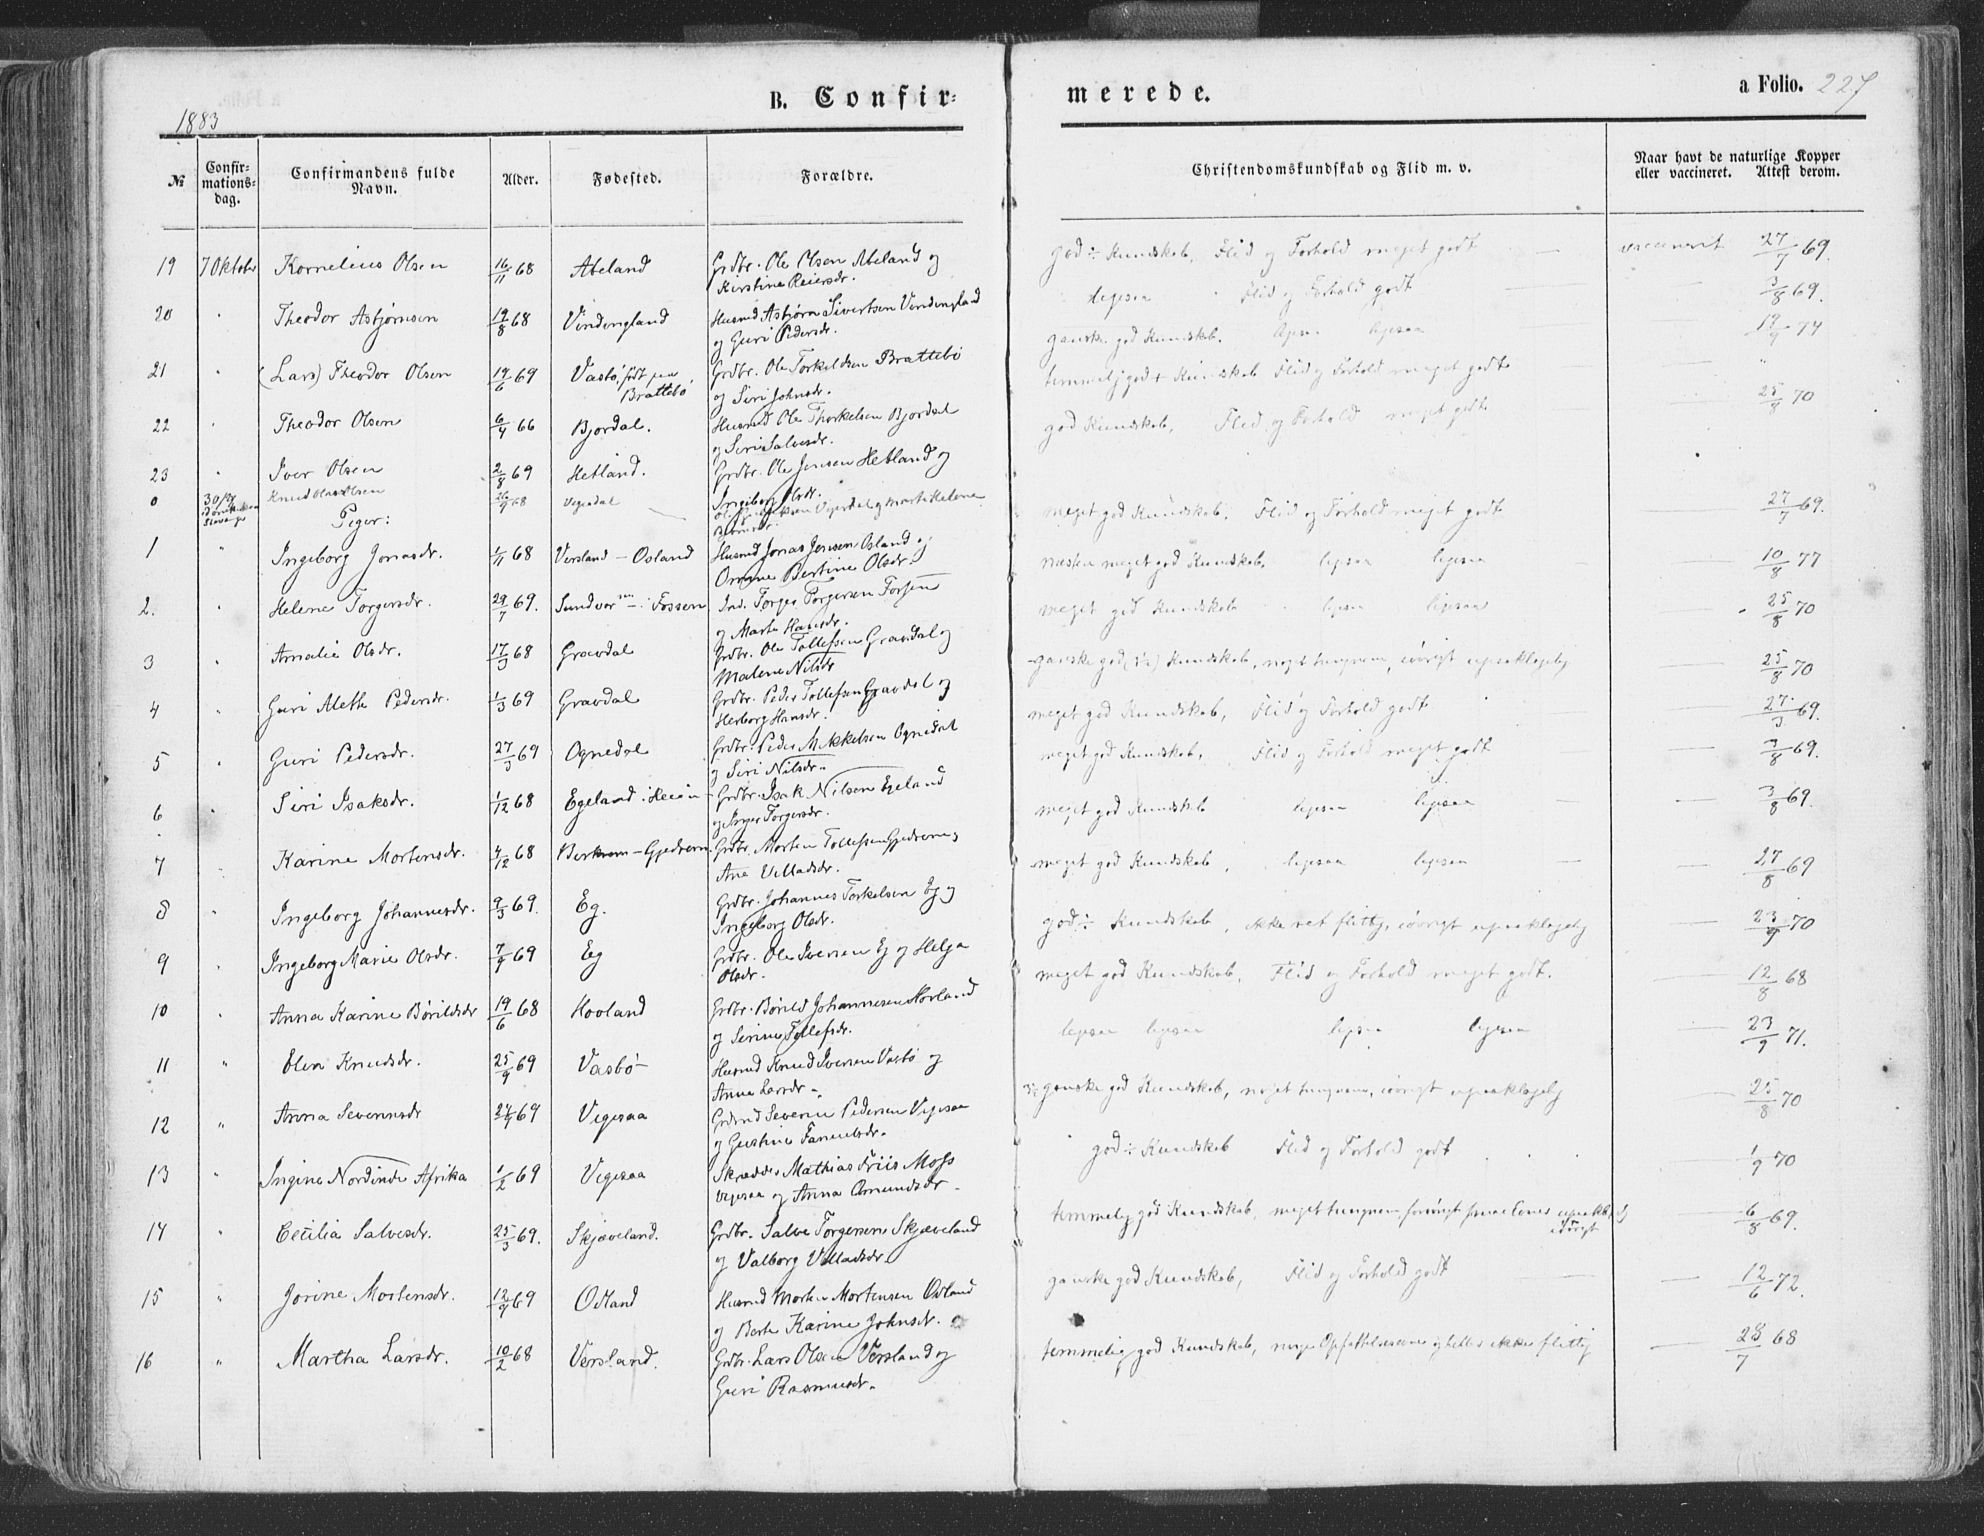 B. Confir-
merede.
a Folio. 227
1883
№
Confir-
mations-
dag.
Confirmandens fulde
Navn.
Alder.
Fødested.
Forældre.
Christendomskundskab og Flid m. v.
Naar havt de naturlige Kopper
eller vaccineret. Attest derom.
19 7 Oktober Kornelius Olsen 16/11 68 Abeland Grdbr. Ole Olsen Abeland og
Kirstine Reiersdr.
god ÷ Kundskab, Flid og Forhold meget godt — vaccinerit 27/7 69.
20 " Theodor Asbjørnsen 19/8 68 Vindingland Husmd Asbjørn Sivertsen Vindingland
og Guri Pedersdr.
ligesaa Flid og Forhold godt 3/8 69.
21 " (Lars) Theodor Olsen 14/6 69 Vasbø, født paa
Brattebø
Grdbr. Ole Torkeldsen Brattebø
og Siri Johnsdr.
ganske god Kundskab. ligesaa 19/9 74
22 " Theodor Olsen 6/4 66 Bjordal. Husmd Ole Thorkelsen Bjordal
og Siri Salvesdr.
temmelig god + Kundskab Flid og Forhold meget godt — "
23 " Iver Olsen 2/8 69 Hetland. Grdbr. Ole Jensen Hetland og
Ingeborg Olsdr.
god Kundskab, Flid og Forhold meget godt 25/8 70
0 30/9 Knud Olsen 68 Vegesdal
Piger:
meget god Kundskab. Flid og Forhold meget godt 27/7 69.
1 " Ingeborg Jonasdr. 1/11 68 Versland – Osland Husmd Jonas Jensen Osland og
Omme Bertine Olsdr.
næsten meget god Kundskab, ligesaa ligesaa — 10/8 77
2. " Helene Torgersdr. 29/7 69. Sundvor i Fossen Ind. Torger Torgersen Forsen
og Marta Hansdr.
meget god Kundskab ligesaa ligesaa 25/8 70
3 " Amalie Olsdr. 17/3 68 Gravdal Grdbr. Ole Tollefsen Gravdal og
Malene Nilsdr
ganske god Kundskab, noget tungnem, iøvrigt upaaklagelig 25/8 70
4 " Guri Alethe Pedersdr. 1/3 69 Gravdal Grdbr. Peder Tollefsen Gravdal og
Herborg Hansdr.
meget god Kundskab, Flid og Forhold godt 27/3 69.
5 " Guri Pedersdr. 27/3 69 Ognedal Grdbr. Peder Mikkelsen Ognedal
og Siri Nilsdr.
meget god Kundskab, Flid og Forhold meget godt 3/8 69.
6 " Siri Isaksdr. 1/12 68 Egeland i Heien Grdbr. Isak Nilsen Egeland
og Inger Torgersdr.
meget god Kundskab ligesaa ligesaa — 3/8 69.
7 " Karine Mortensdr. 4/12 68 Berkrem – Gjedrem. Grdbr. Morten Tollefsen Gjedrem og
Ane Villadsdr.
meget god Kundskab, ligesaa ligesaa — 27/8 69
8 " Ingeborg Johannesdr. 9/3 69. Eg. Grdbr. Johannes Torkelsen Eg og
Ingeborg Olsdr.
god ÷ Kundskab, ikke ret flittig, iøvrigt upaaklagelig — 23/9 70
9 " Ingeborg Marie Olsdr. 7/9 69 Eg Grdbr. Ole Iversen Eg og Helga
Olsdr.
meget god Kundskab, Flid og Forhold meget godt. — 12/8 68
10 " Anna Karine Børildsdr 19/6 68 Hovland Grdbr. Børild Johannesen Hovland
og Serine Tollefsdr.
ligesaa ligesaa ligesaa ligesaa — 23/9 71.
11 " Elen Knudsdr. 25/9 69 Vasbø Husmd Knud Iversen Vasbø og
Anna Larsdr.
ganske god Kundskab, noget tungnem, iøvrigt upaaklagelig — 25/8 70
12 " Anna Severinsdr 69 Vigesaa Grdmd Severin Pedersen Vigesaa
og Gustine Samuelsdr.
god ÷ Kundskab Flid og Forhold godt — 1/9 70
13 " Ingine Nordinde Afrika 1/2 69 Vigesaa Skrædder Mathias Friis Moss
Vigesaa og Anna Omundsdr
temmelig god Kundskab, meget tungnem, iøvrigt — 6/8 69.
14 " Cecilia Salvesdr. 25/3 69. Skjæveland. Grdbr. Salve Torgersen Skjæveland
og Valborg Villadsdr
ganske god Kundskab, Flid og Forhold godt — 12/6 72.
15 " Jorine Mortensdr. 12/9 69 Odland Husmd Morten Mortensen Odland
og Berte Karine Johnsdr.
16 " Martha Larsdr. 10/2 68 Versland. Grdbr. Lars Olsen Versland og
Guri Rasmusdr.
temmelig god Kundskab, ikke flittig — 28/7 68